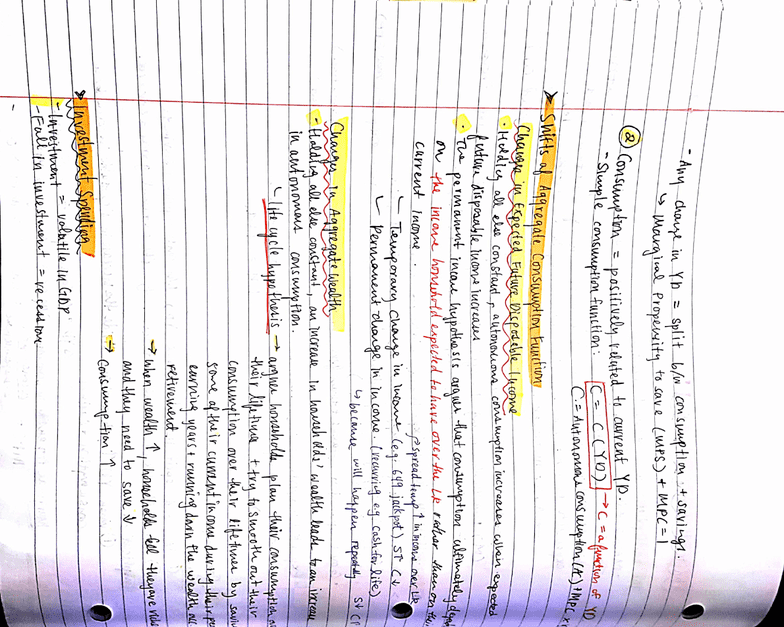 - Any change in YD = split b/w consumption + savings.
↳ Marginal Propensity to save (MPS) + MPC = 1
② Consumption = positively related to current YD.
- Simple consumption function: C = C (YD) → C = a function of YD
C = Autonomous consumption (A) + MPC x
➤ Shifts of Aggregate Consumption Function
Changes in Expected Future Disposable Income
• Holding all else constant, autonomous consumption increases when expected
future disposable income increases
• The permanent income hypothesis argues that consumption ultimately
on the income household expected to have over the LR rather than on
current income.
↗ spread temp ↑ in income over LR
↳ Temporary change in income (eg. 649 jackpot) ST C↓
↳ Permanent change in income. (recurring eg cash for life)
↳ because will happen repeatedly
Changes in Aggregate Wealth
- Holding all else constant, an increase in households' wealth leads to an increase
in autonomous consumption.
↳ life cycle hypothesis → argues households plan their consumption
their lifetimes + try to smooth out their
consumption over their lifetimes by
some of their current income during their
earning years + running down the wealth
retirement.
→ When wealth ↑, households feel they are
and they need to save ↓
→ Consumption ↑
➤ Investment Spending
- Investment = volatile in GDP
- Fall in investment = recession